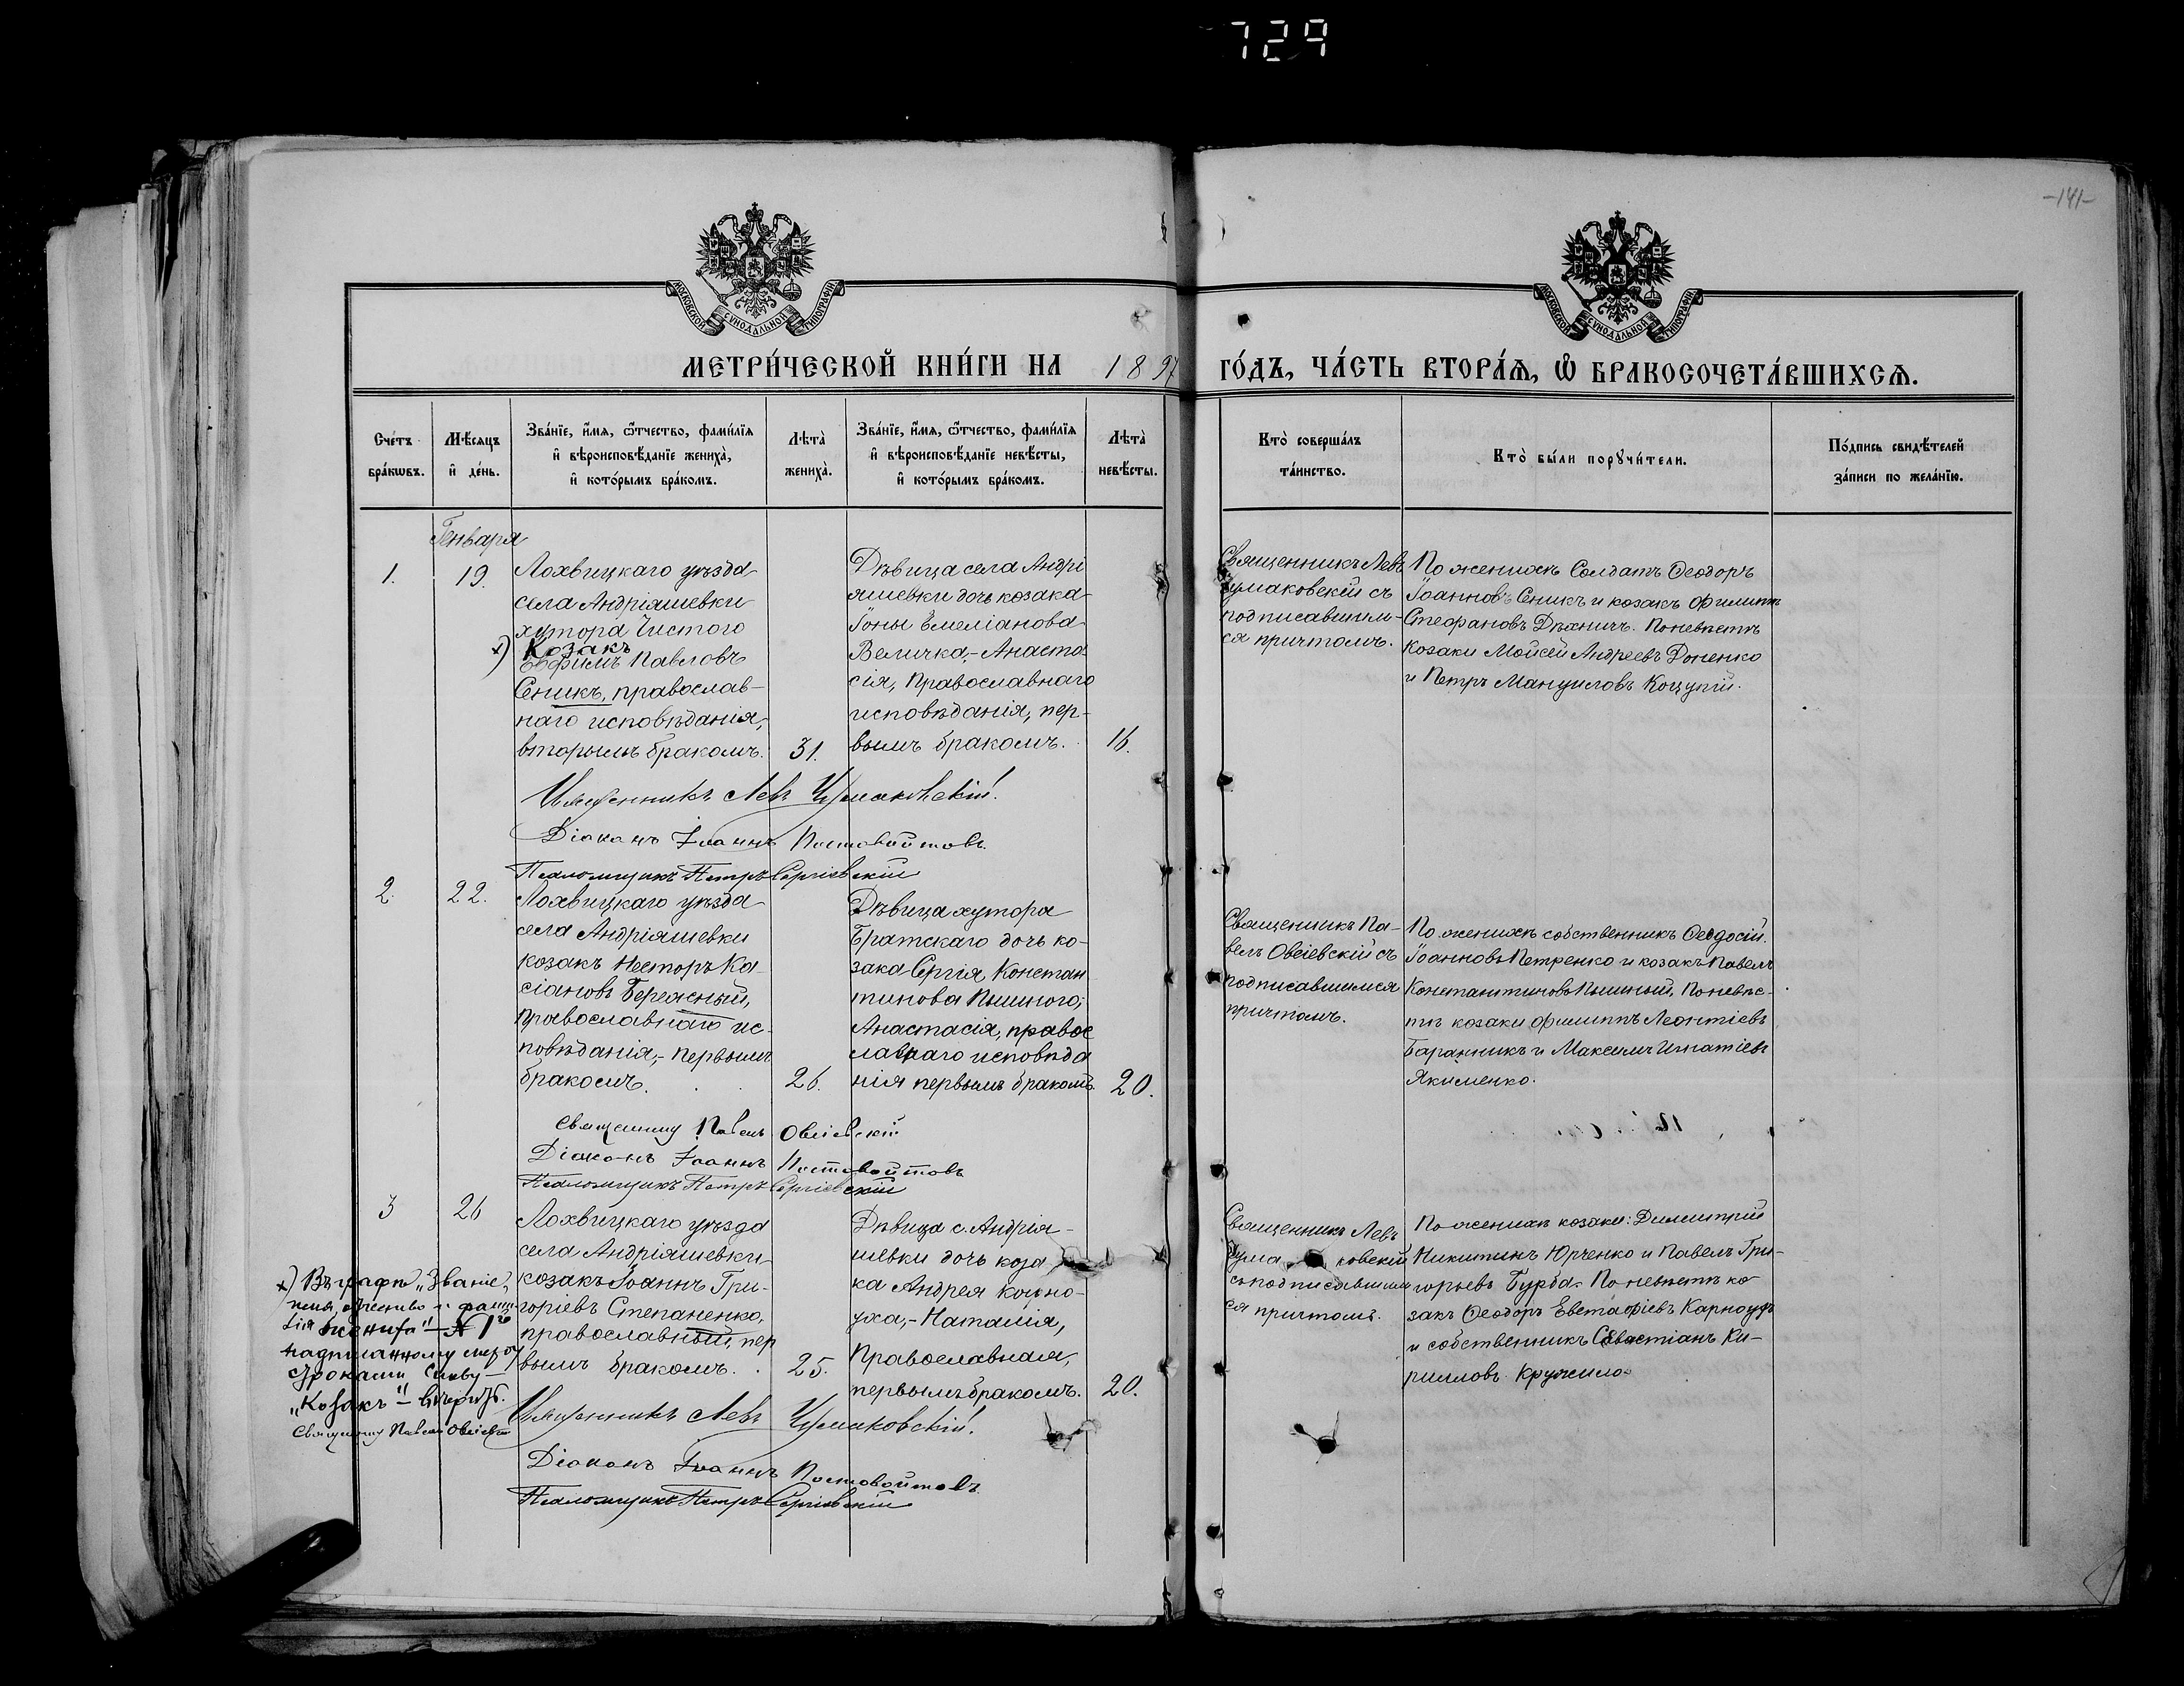 729
-141-
МОСКОВСКОЙ СѴНОДАЛЬНОЙ ТИПОГРАФІИ
МОСКОВСКОЙ СѴНОДАЛЬНОЙ ТИПОГРАФІИ
МЕТРИ́ЧЕСКОЙ КНИ́ГИ НА 1897 ГО́ДЪ, ЧА́СТЬ ВТОРА́Ѧ, Ѽ БРАКОСОЧЕТА́ВШИХСѦ.
Сче́тъ
бра́кѡвъ.
Мѣ́сѧцъ
и҆ де́нь.
Зва́нїе, и҆́мѧ, ѻ҆́тчество, фами́лїѧ
и҆ вѣроисповѣ́данїе жениха̀,
и҆ кото́рымъ бра́комъ.
Лѣта̀
жениха̀.
Зва́нїе, и҆́мѧ, ѻ҆́тчество, фами́лїѧ
и҆ вѣроисповѣ́данїе невѣ́сты,
и҆ кото́рымъ бра́комъ.
Лѣта̀
невѣ́сты.
Кто̀ соверша́лъ
та́инство.
Кто̀ бы́ли порꙋчи́тели.
По́дпись свидѣ́телей
за́писи по жела́нїю.
Генваря
1.
19.
Лохвицкаго уѣзда
села Андріяшевки
хутора Чистого
х) Козакъ
Евфимъ Павловъ
Сеникъ, православ-
наго исповѣданія,
вторымъ бракомъ.
31.
Дѣвица села Андрі
яшевки дочь козака
Іоны Емеліанова
Величка,- Анаста-
сія, Православнаго
исповѣданія, пер-
вымъ бракомъ.
16.
Священникъ Левъ
Чумаковскій съ
подписавшим-
ся причтомъ.
По женихѣ Солдатъ Ѳеодоръ
Іоанновъ Сеникъ и козакъ Филиппъ
Стефановъ Дѣхничъ. По невѣстѣ
Козаки Мойсей Андреевъ Доненко
и Петръ Мануиловъ Коцупій.
Священникъ Левъ Чумаковскій.
Діаконъ Іоаннъ Постовойтовъ.
Псаломщикъ Петръ Сергіевскій
2.
22.
Лохвицкаго уѣзда
села Андріяшевки
козакъ Несторъ Ка-
сіановъ Бережный,
Православнаго ис-
повѣданія,- первымъ
бракомъ.
26.
Дѣвица хутора
Братскаго дочь ко-
зака Сергія Констан
тинова Пышного,
Анастасія, правос
лавнаго исповѣда
нія первымъ бракомъ.
20.
Священникъ Па-
велъ Овсіевскій съ
подписавшимся
причтомъ.
По женихѣ собственникъ Ѳеодосій
Іоанновъ Петренко и козакъ Павелъ
Константиновъ Пышный, По невѣс-
тѣ козаки Филиппъ Леонтіевъ
Баранникъ и Максимъ Игнатіевъ
Якименко.
Священникъ Павелъ Овсіевскій
Діаконъ Іоаннъ Постовойтовъ
Псаломщикъ Петръ Сергіевскій
3
26
Лохвицкаго уѣзда
села Андріяшевки
козакъ Іоаннъ Гри-
горіевъ Степаненко,
православный, пер
вымъ бракомъ.
25.
Дѣвица с. Андрія-
шевки дочь коза
ка Андрея Кохно-
уха,- Наталія,
Православная,
первымъ бракомъ.
20.
Священникъ Левъ
Чума ковскій
съ подписавшим
ся причтомъ.
По женихѣ козаки: Димитрій
Никитинъ Юрченко и Павелъ Гри-
горьевъ Бурба. По невѣстѣ ко
закъ Ѳеодоръ Евстафіевъ Карнаухъ
и собственникъ Севастіанъ Ки-
рилловъ Кружило.
х) Въ графѣ „Званіе,
имя, отчество и фами-
лія жениха" - № 1го
надписанному между
строками слову -
„Козакъ" - вѣрить.
Священникъ Павелъ Овсіевскій
Священникъ Левъ Чумаковскій.
Діаконъ Іоаннъ Постовойтовъ.
Псаломщикъ Петръ Сергіевскій